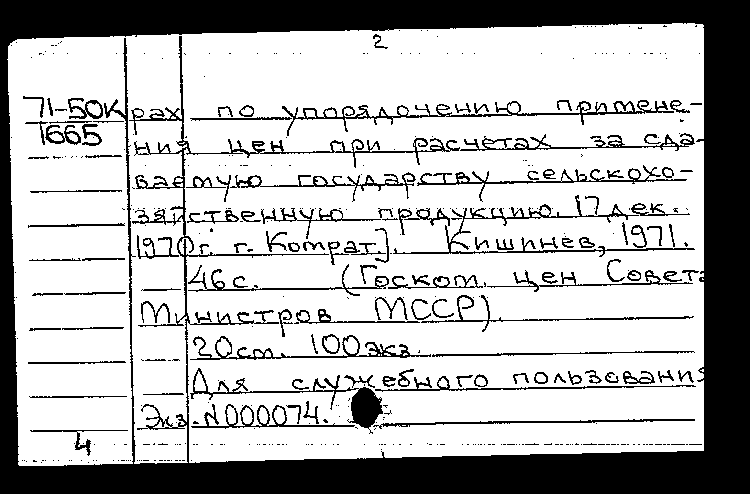 2
71-50К рах по упорядочению примене-
1665 ния цен при расчетах за сда-
ваемую государству сельскохо-
зяйственную продукцию. 17 дек.
1970г. г. Комрат]. Кишинев, 1971.
46с. (Госком. цен Совета
Министров МССР).
20см. 100экз.
Для служебного пользования
Экз. №000074.
4